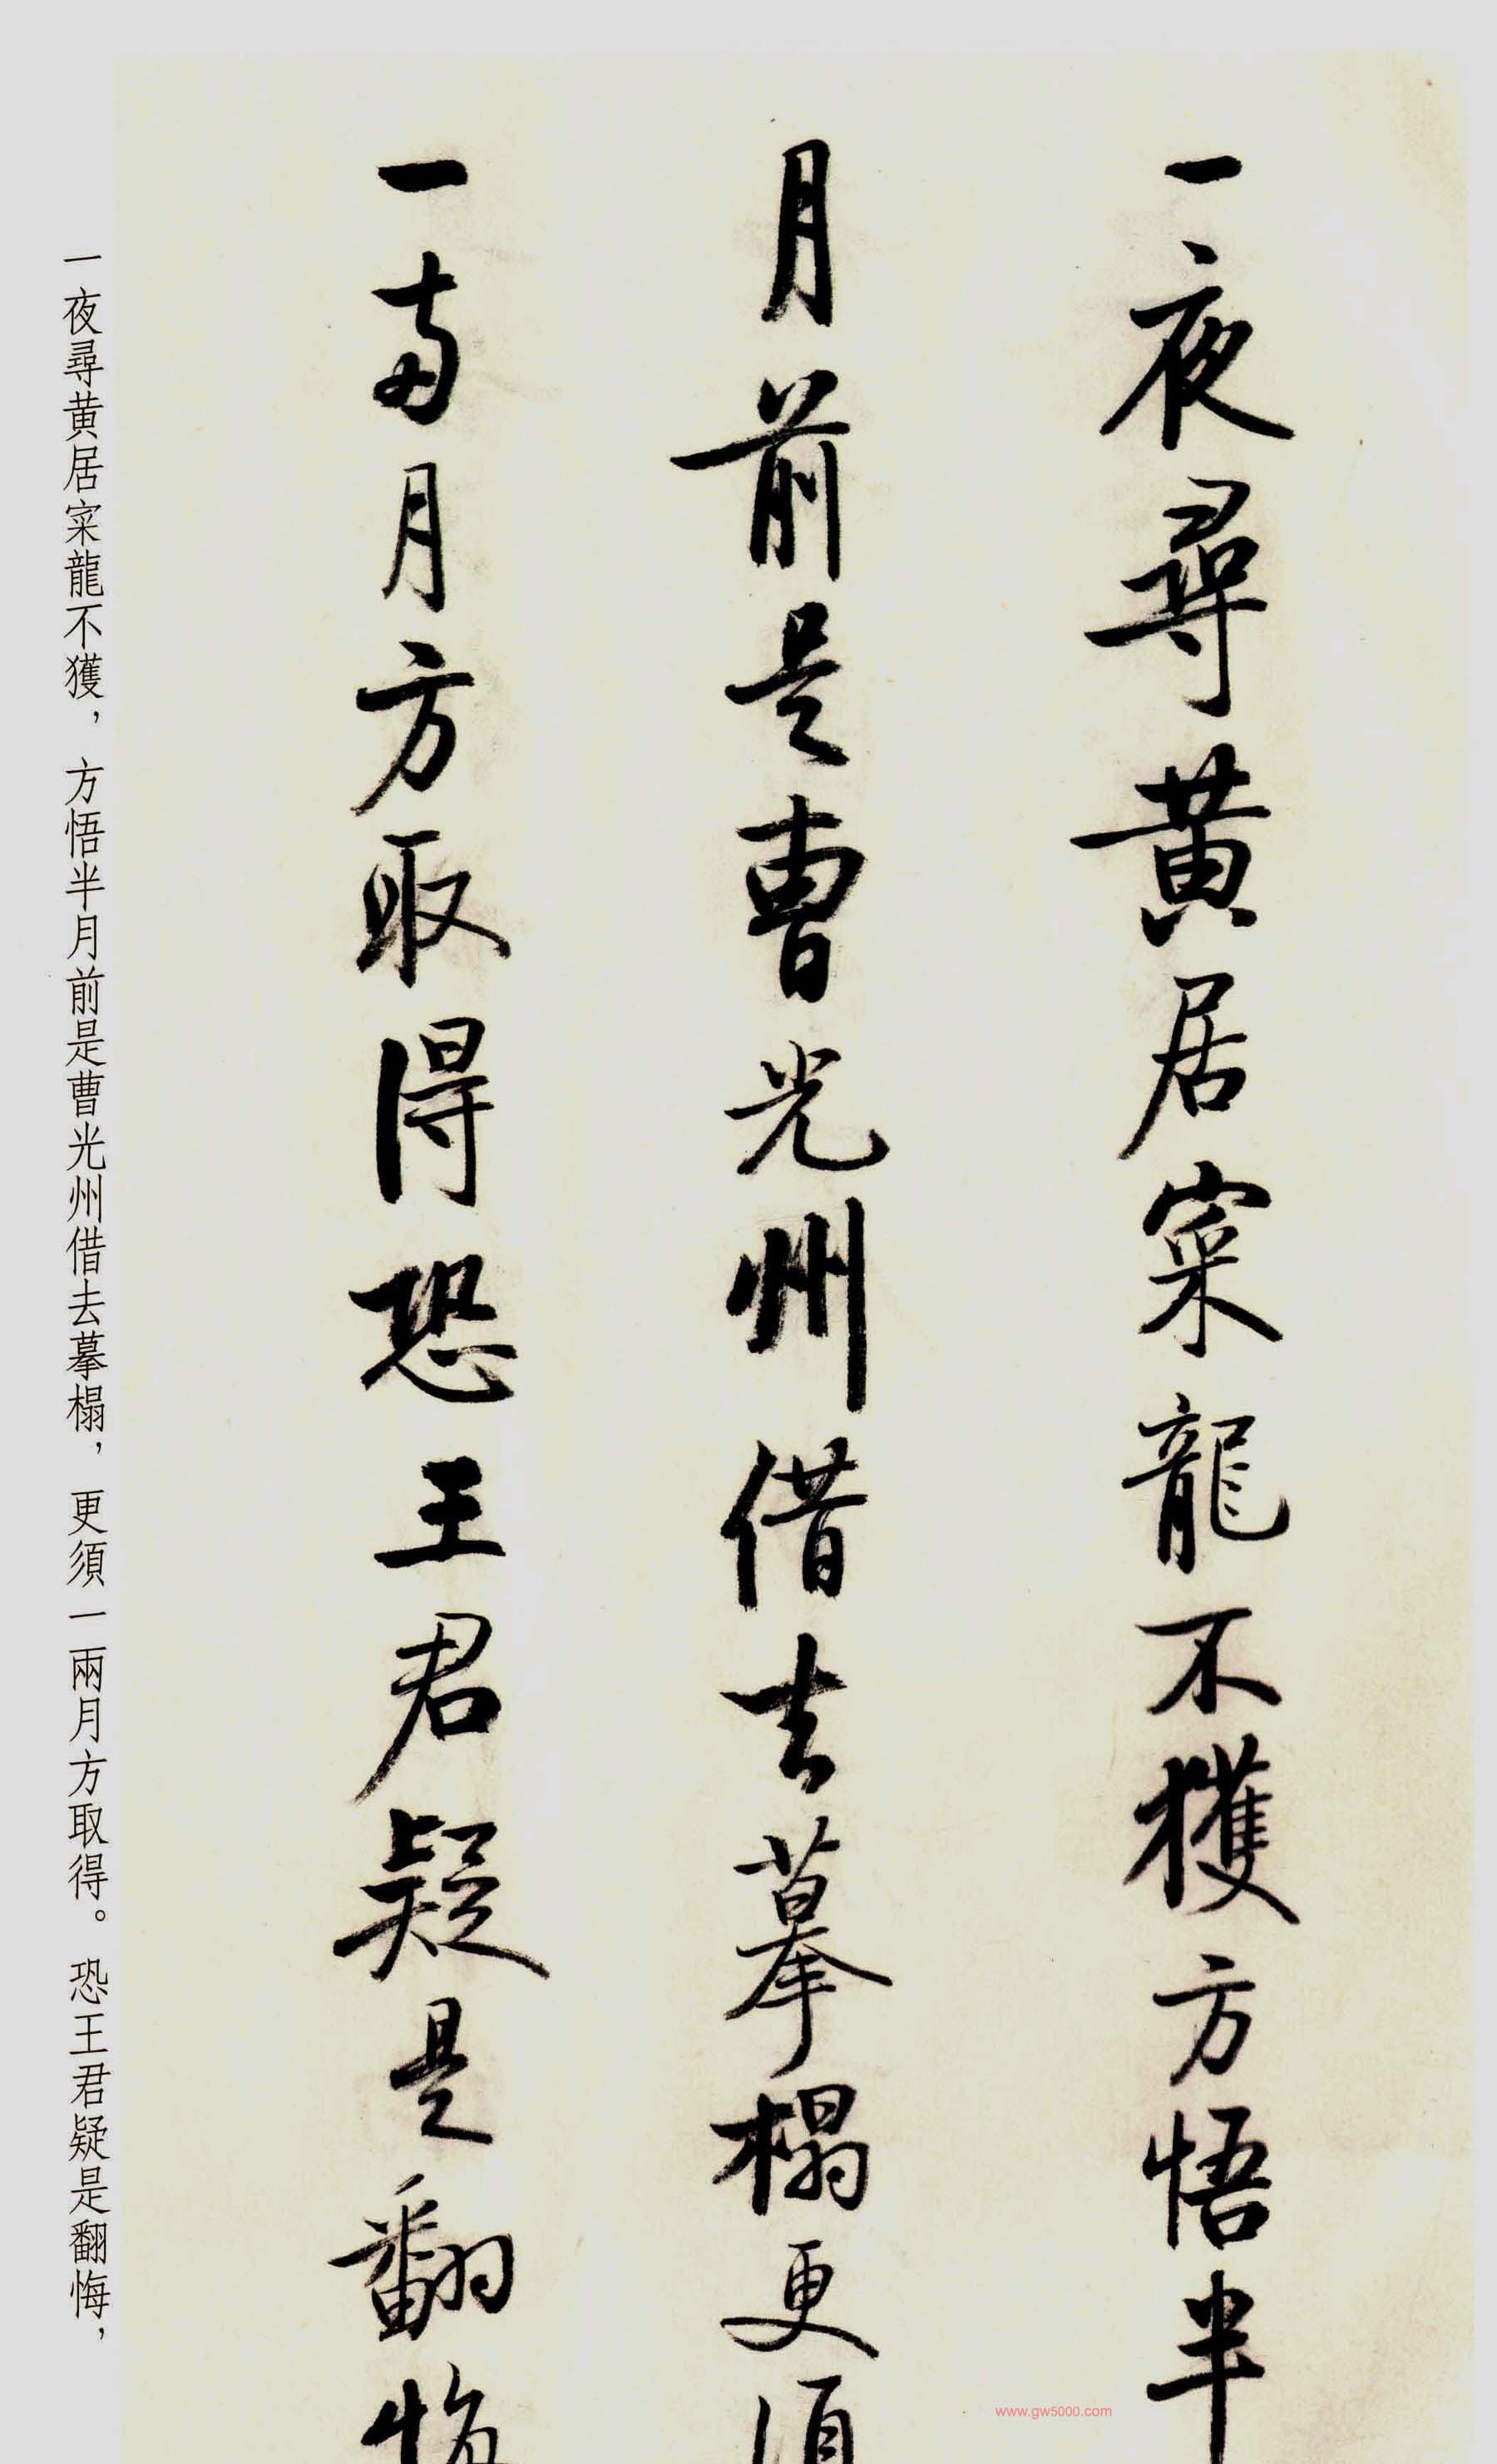 一夜尋黄居寀龍不獲方悟半
月前是曹光州借去摹榻更須
一兩月方取得恐王君疑是翻悔
一夜尋黄居寀龍不獲，方悟半月前是曹光州借去摹榻，更須一兩月方取得。恐王君疑是翻悔，
www.gw5000.com